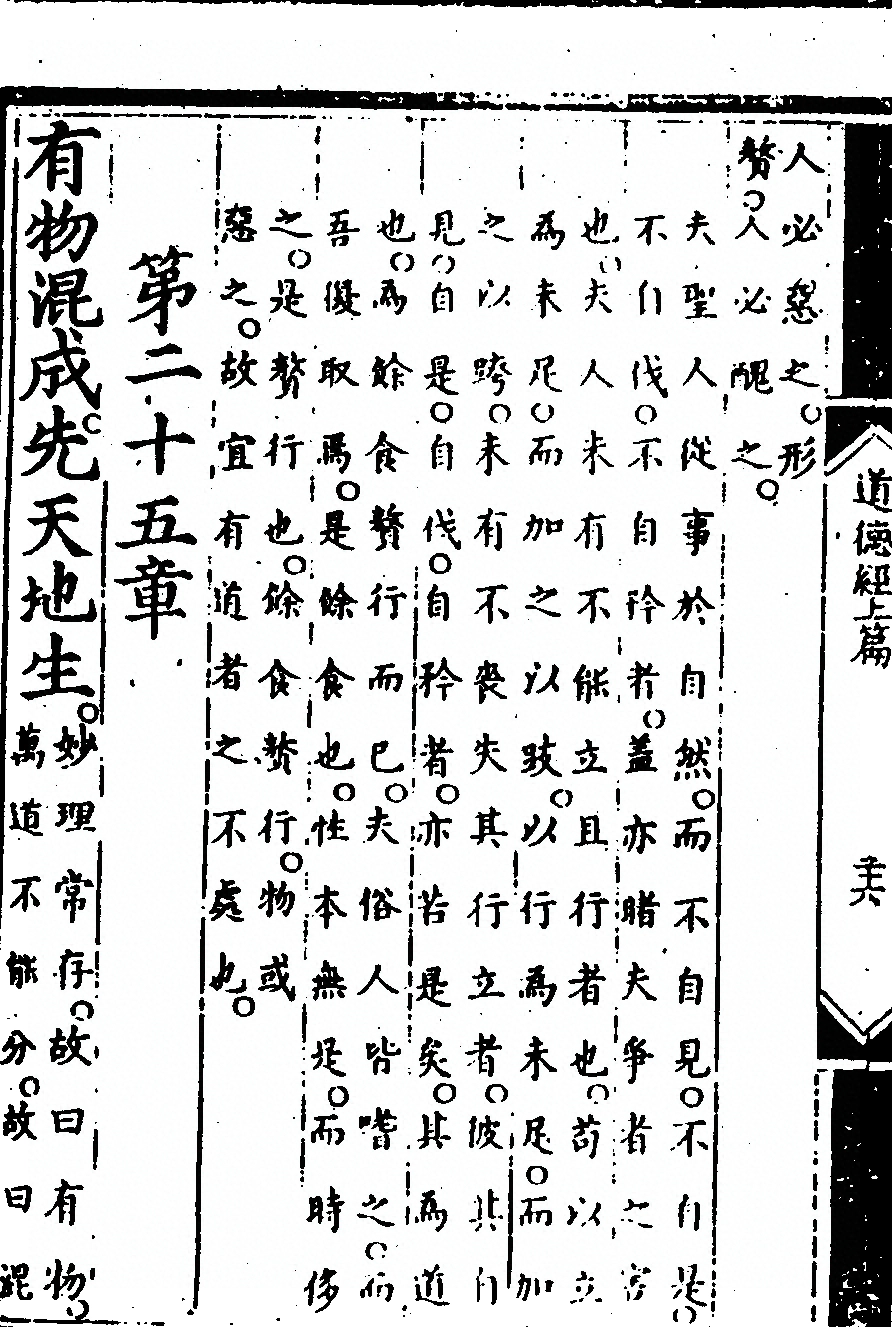 道德經上篇
人必惡之。形
贅。人必醜之。
夫聖人從事於自然。而不自見。不自是。
不自伐。不自矜者。蓋亦睹夫爭者之害
也。夫人未有不能立且行者也。苟以立
為未足。而加之以跂。以行為未足。而加
之以跨。未有不喪失其行立者。彼其自
見。自是。自伐。自矜者。亦若是矣。其為道
也。為餘食贅行而已。夫俗人皆嗜之。而
吾儗取焉。是餘食也。性本無是。而時侈
之。是贅行也。餘食贅行。物或
惡之。故宜有道者之不處也。
第二十五章
有物混成。先天地生。
妙理常存。故曰有物。
萬道不能分。故曰混